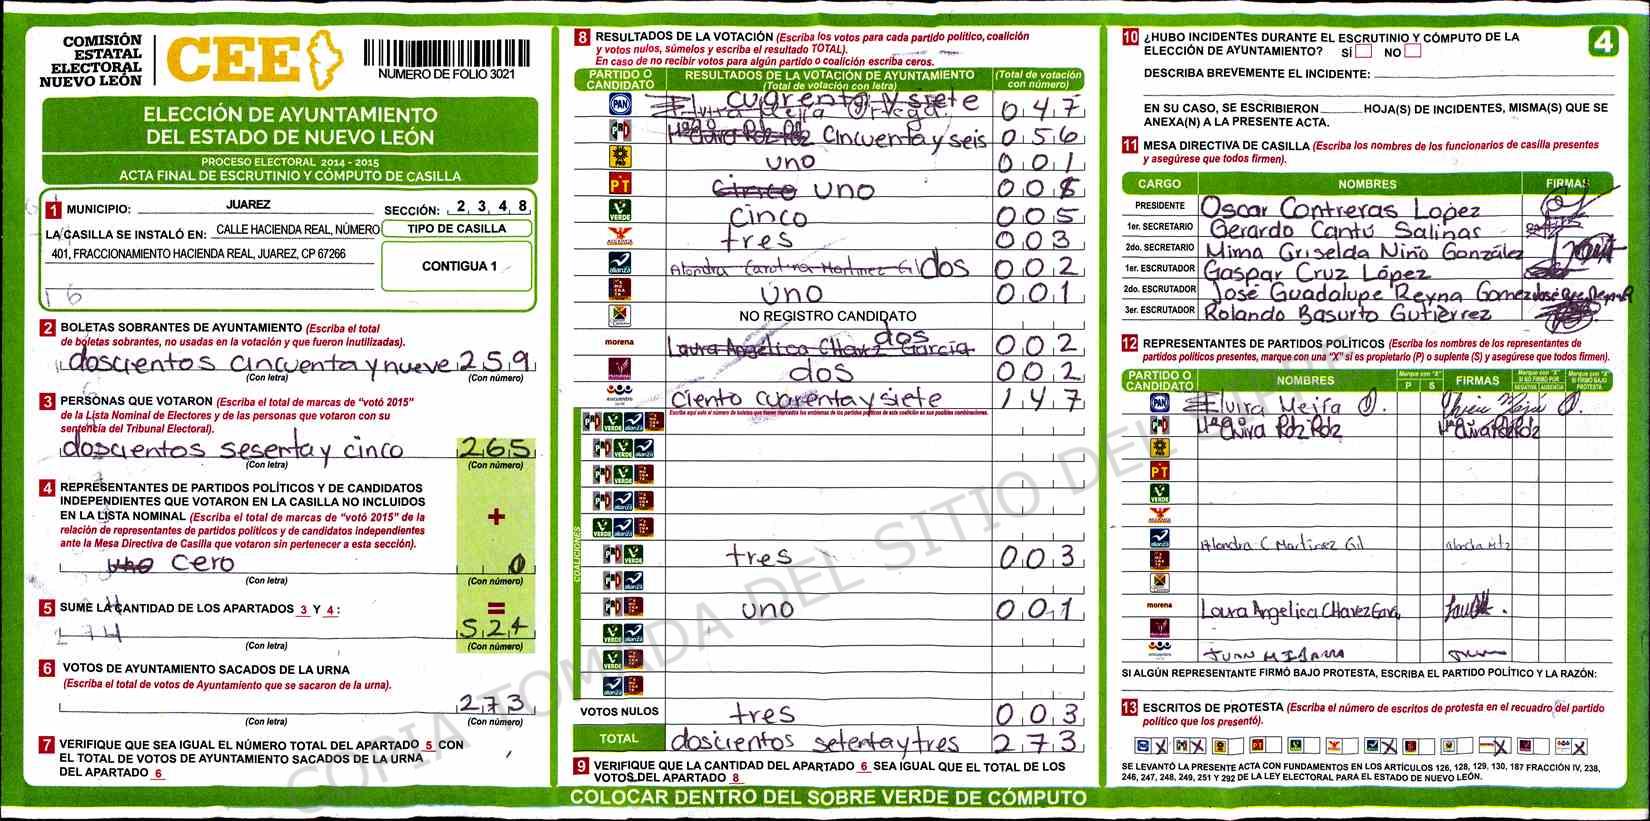 COMISIÓN
ESTATAL
ELECTORAL
NUEVO LEÓN
CEE
NUMERO DE FOLIO 3021
ELECCIÓN DE AYUNTAMIENTO
DEL ESTADO DE NUEVO LEÓN
PROCESO ELECTORAL 2014 - 2015
ACTA FINAL DE ESCRUTINIO Y CÓMPUTO DE CASILLA
1 MUNICIPIO: JUAREZ SECCIÓN: 2 3 4 8
LA CASILLA SE INSTALÓ EN: CALLE HACIENDA REAL, NÚMERO
401, FRACCIONAMIENTO HACIENDA REAL, JUAREZ, CP 67266
TIPO DE CASILLA
CONTIGUA 1
2 BOLETAS SOBRANTES DE AYUNTAMIENTO (Escriba el total
de boletas sobrantes, no usadas en la votación y que fueron inutilizadas).
doscientos cincuenta y nueve 259
(Con letra) (Con número)
3 PERSONAS QUE VOTARON (Escriba el total de marcas de "votó 2015"
de la Lista Nominal de Electores y de las personas que votaron con su
sentencia del Tribunal Electoral).
doscientos sesenta y cinco 265
(Con letra) (Con número)
4 REPRESENTANTES DE PARTIDOS POLÍTICOS Y DE CANDIDATOS
INDEPENDIENTES QUE VOTARON EN LA CASILLA NO INCLUIDOS
EN LA LISTA NOMINAL (Escriba el total de marcas de "votó 2015" de la
relación de representantes de partidos políticos y de candidatos independientes
ante la Mesa Directiva de Casilla que votaron sin pertenecer a esta sección).
+
uno cero 0
(Con letra) (Con número)
5 SUME LA CANTIDAD DE LOS APARTADOS 3 Y 4:
=
524
(Con letra) (Con número)
6 VOTOS DE AYUNTAMIENTO SACADOS DE LA URNA
(Escriba el total de votos de Ayuntamiento que se sacaron de la urna).
273
(Con letra) (Con número)
7 VERIFIQUE QUE SEA IGUAL EL NÚMERO TOTAL DEL APARTADO 5 CON
EL TOTAL DE VOTOS DE AYUNTAMIENTO SACADOS DE LA URNA
DEL APARTADO 6
8 RESULTADOS DE LA VOTACIÓN (Escriba los votos para cada partido político, coalición
y votos nulos, súmelos y escriba el resultado TOTAL).
En caso de no recibir votos para algún partido o coalición escriba ceros.
PARTIDO O CANDIDATO
RESULTADOS DE LA VOTACIÓN DE AYUNTAMIENTO
(Total de votación con letra)
(Total de votación con número)
PAN Elvira Mejia Ortega cuarenta y siete 047
PRI cincuenta y seis 056
PRD uno 001
PT cinco uno 001
VERDE cinco 005
tres 003
alianza Alondra Carolina Martinez Gil dos 002
uno 001
NO REGISTRO CANDIDATO
morena Laura Angelica Chavez Garcia dos 002
dos 002
encuentro ciento cuarenta y siete 147
Escriba aquí solo el número de boletas que tienen marcados los emblemas de los partidos políticos de esta coalición en sus posibles combinaciones.
COALICIONES
tres 003
uno 001
VOTOS NULOS tres 003
TOTAL doscientos setenta y tres 273
9 VERIFIQUE QUE LA CANTIDAD DEL APARTADO 6 SEA IGUAL QUE EL TOTAL DE LOS
VOTOS DEL APARTADO 8
COLOCAR DENTRO DEL SOBRE VERDE DE CÓMPUTO
10 ¿HUBO INCIDENTES DURANTE EL ESCRUTINIO Y CÓMPUTO DE LA
ELECCIÓN DE AYUNTAMIENTO? SÍ NO
4
DESCRIBA BREVEMENTE EL INCIDENTE:
EN SU CASO, SE ESCRIBIERON HOJA(S) DE INCIDENTES, MISMA(S) QUE SE
ANEXA(N) A LA PRESENTE ACTA.
11 MESA DIRECTIVA DE CASILLA (Escriba los nombres de los funcionarios de casilla presentes
y asegúrese que todos firmen).
CARGO NOMBRES FIRMAS
PRESIDENTE Oscar Contreras Lopez
1er. SECRETARIO Gerardo Cantú Salinas
2do. SECRETARIO Mirna Griselda Niño González
1er. ESCRUTADOR Gaspar Cruz López
2do. ESCRUTADOR José Guadalupe Reyna Gomez
3er. ESCRUTADOR Rolando Basurto Gutiérrez
12 REPRESENTANTES DE PARTIDOS POLÍTICOS (Escriba los nombres de los representantes de
partidos políticos presentes, marque con una "X" si es propietario (P) o suplente (S) y asegúrese que todos firmen).
PARTIDO O CANDIDATO NOMBRES P S FIRMAS
PAN Elvira Mejía O.
Alondra C Martinez Gil
morena Laura Angelica Chavez
SI ALGÚN REPRESENTANTE FIRMÓ BAJO PROTESTA, ESCRIBA EL PARTIDO POLÍTICO Y LA RAZÓN:
13 ESCRITOS DE PROTESTA (Escriba el número de escritos de protesta en el recuadro del partido
político que los presentó).
SE LEVANTÓ LA PRESENTE ACTA CON FUNDAMENTOS EN LOS ARTÍCULOS 126, 128, 129, 130, 187 FRACCIÓN IV, 238,
246, 247, 248, 249, 251 Y 292 DE LA LEY ELECTORAL PARA EL ESTADO DE NUEVO LEÓN.
COPIA TOMADA DEL SITIO DEL